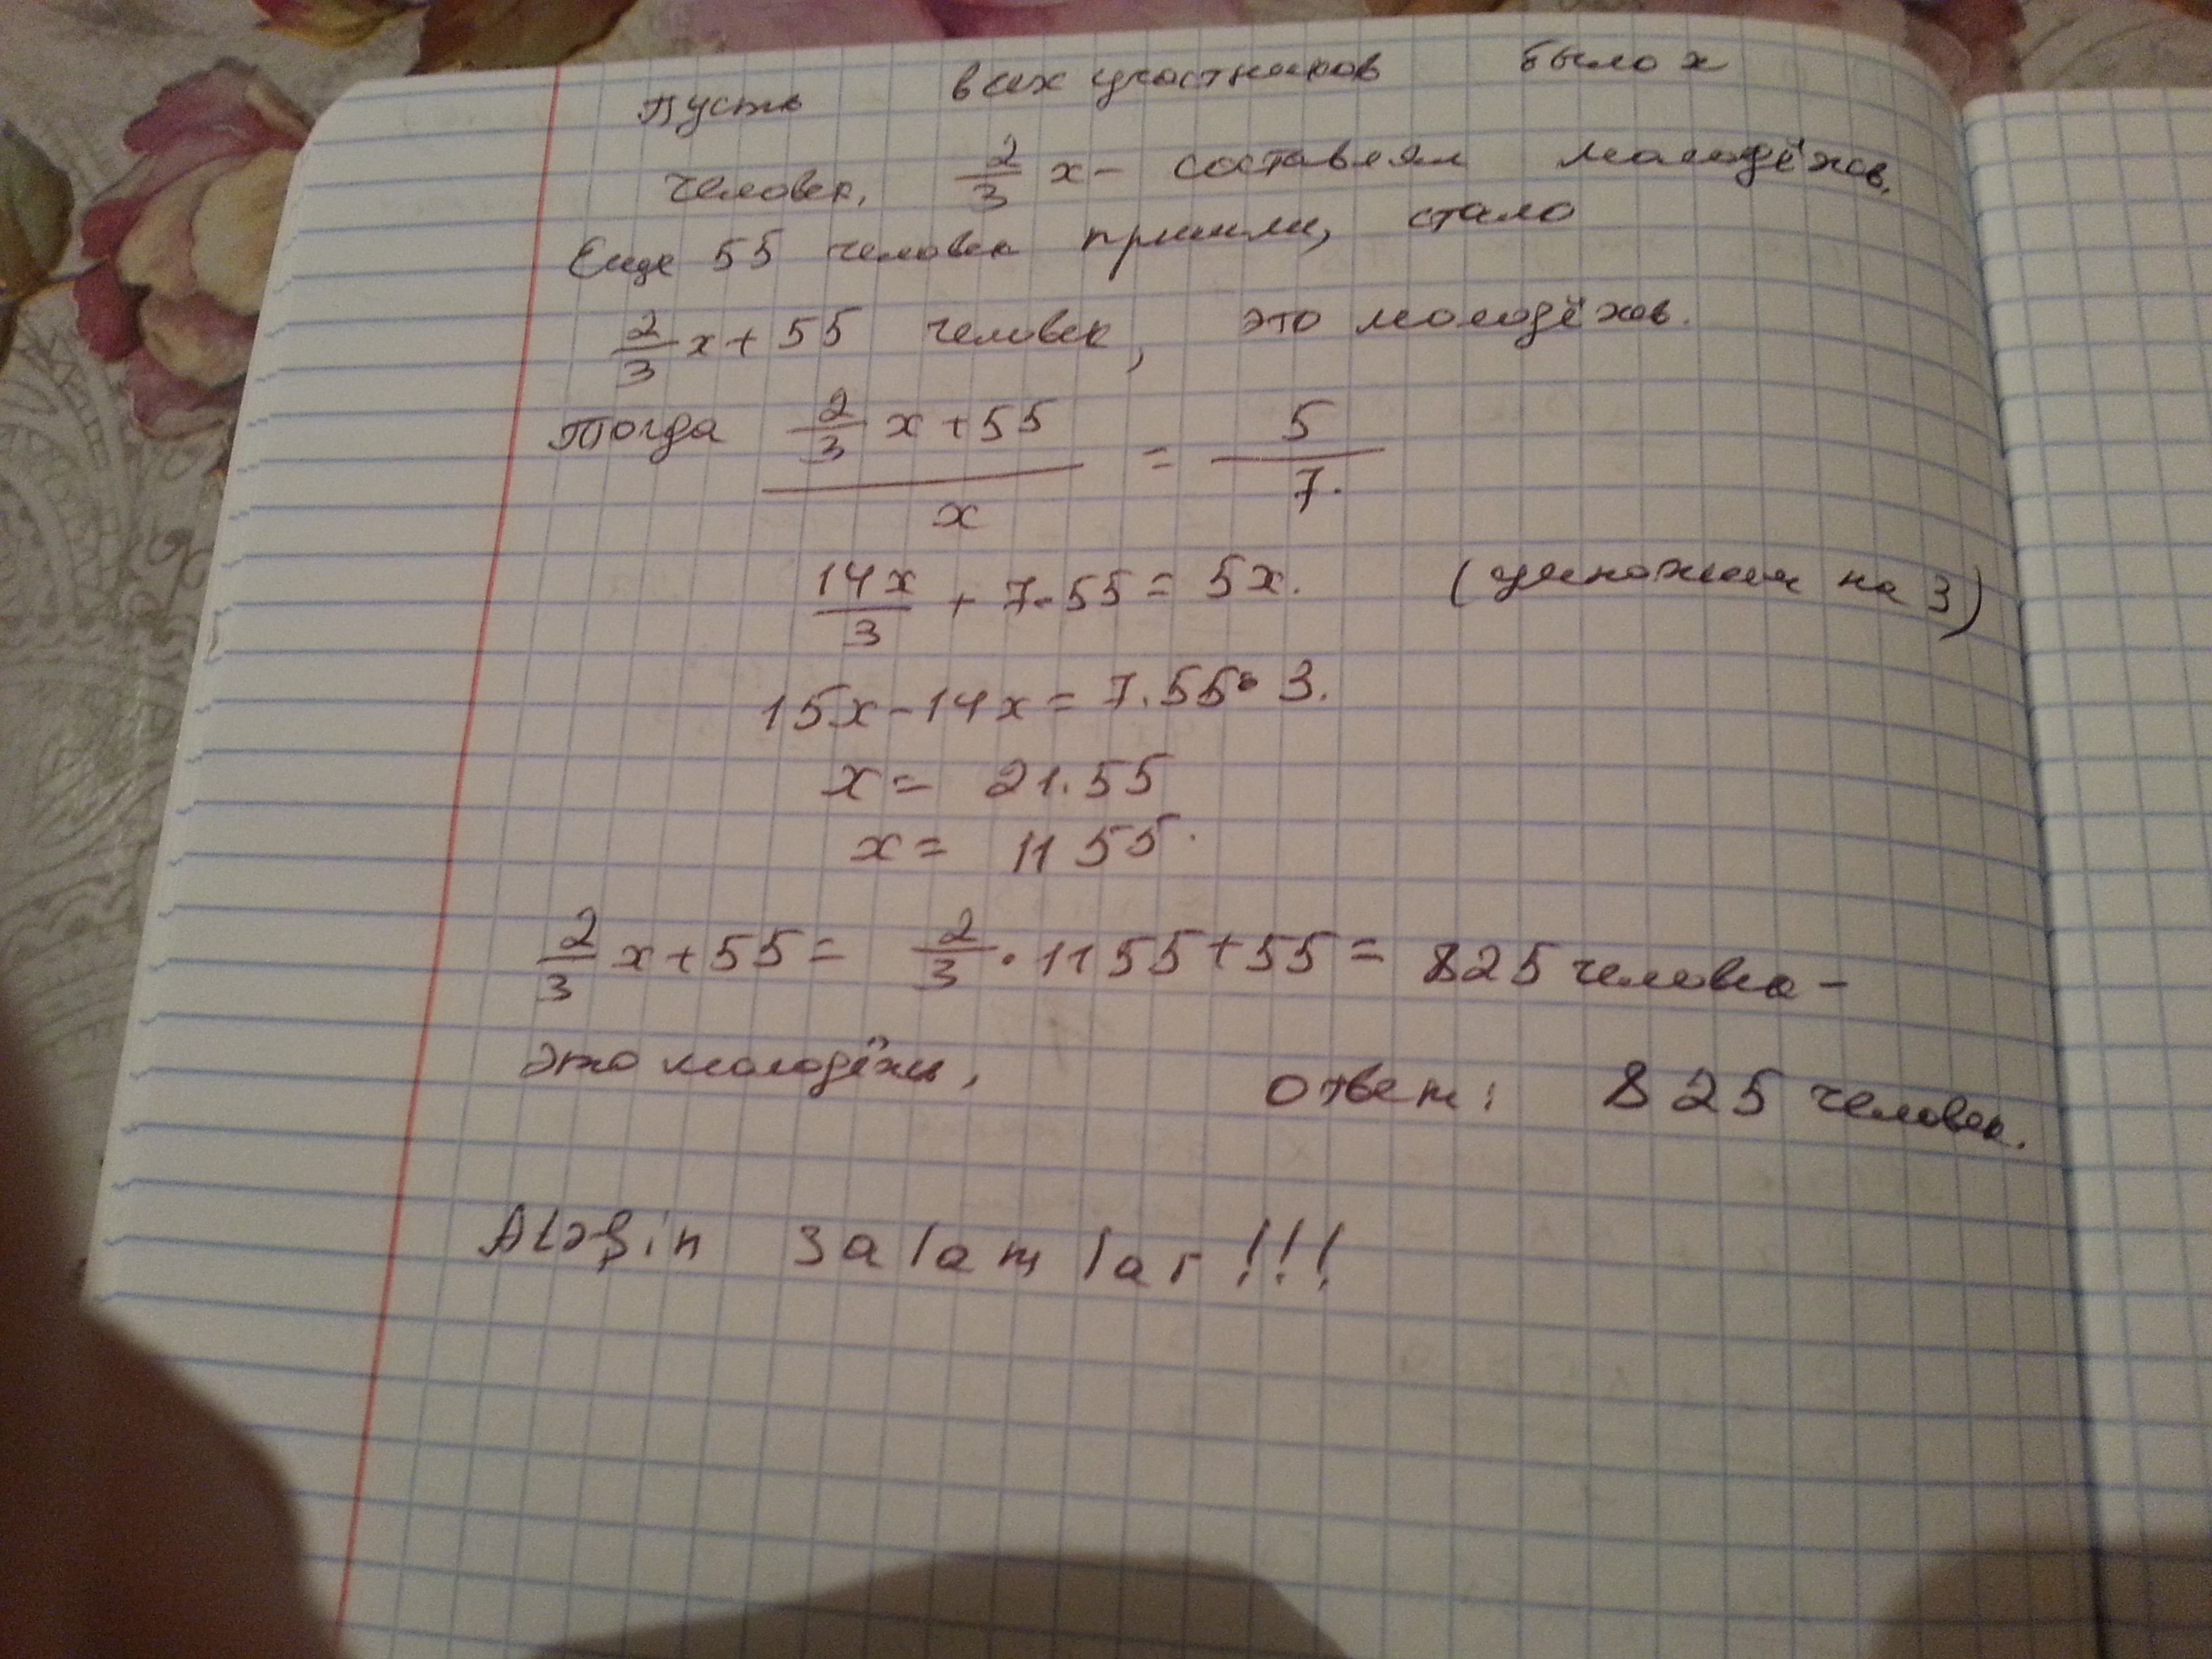 Пусть всех участников было x
человек, 2/3 x - составлял молодёжов.
Еще 55 человек пришли, стало
2/3 x + 55 человек, это молодёжов.
Тогда (2/3 x + 55)/x = 5/7.
14x/3 + 7·55 = 5x. (умножим на 3)
15x - 14x = 7·55·3.
x = 21·55
x = 1155.
2/3 x + 55 = 2/3 · 1155 + 55 = 825 человек -
это молодёжи.
Ответ: 825 человек.
Aləşin salamlar!!!